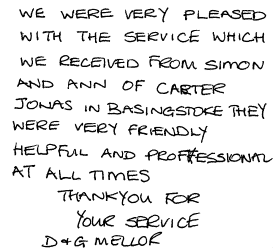 WE WERE VERY PLEASED
WITH THE SERVICE WHICH
WE RECEIVED FROM SIMON
AND ANN OF CARTER
JONAS IN BASINGSTOKE THEY
WERE VERY FRIENDLY
HELPFUL AND PROFFESSIONAL
AT ALL TIMES
THANKYOU FOR
YOUR SERVICE
D & G MELLOR